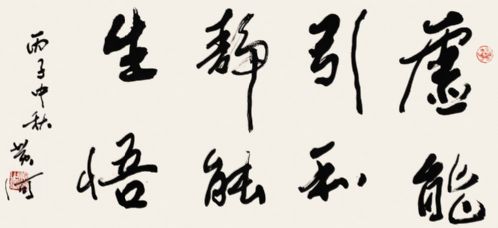 虚能
引和
静能
生悟
丙子中秋
黄河